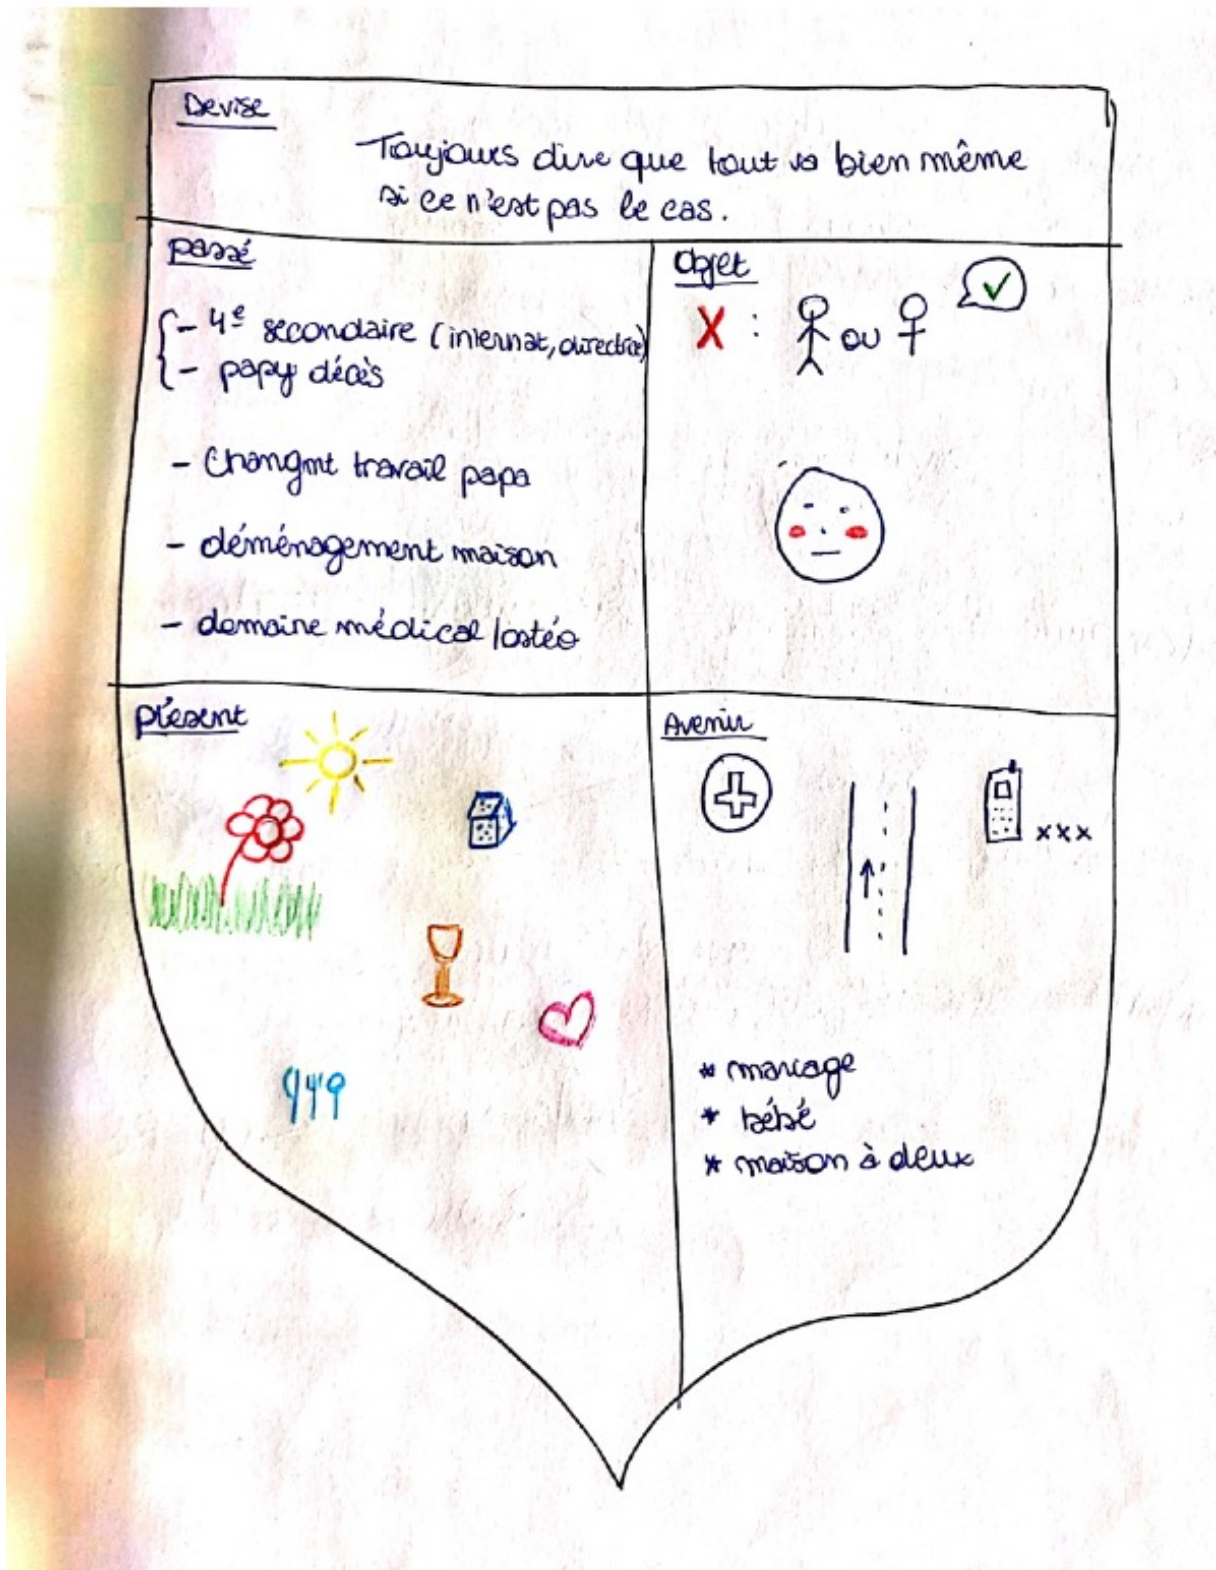 Devise
Toujours dire que tout va bien même
si ce n'est pas le cas.
passé
- 4e secondaire (internat, directrice)
- papy décès
- Changmt travail papa
- déménagement maison
- domaine médical /ostéo
Objet
X : ou
présent
Avenir
xxx
* mariage
* bébé
* maison à deux